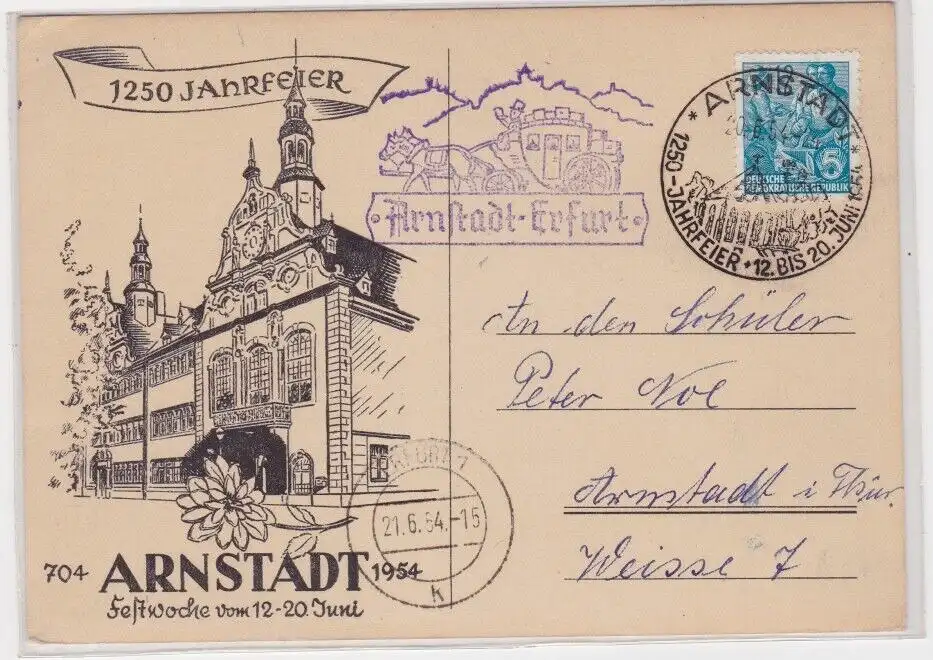 1250 JAHRFEIER
704 ARNSTADT 1954
Festwoche vom 12-20. Juni
Arnstadt-Erfurt
5
DEUTSCHE
DEMOKRATISCHE REPUBLIK
* ARNSTADT *
20.6.54
1250-JAHRFEIER • 12. BIS 20. JUNI 1954
An den Schüler
Peter Noe
Arnstadt i Thür.
Weisse 7
21.6.54.-15
k